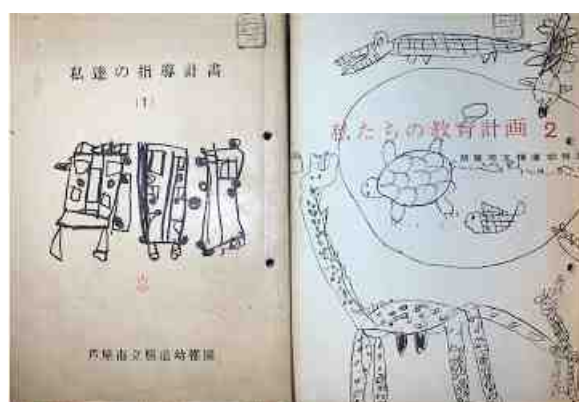 私達の指導計畫
(1)
芦屋市立精道幼稚園
私たちの教育計画 2